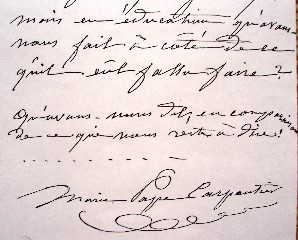 mois en éducation qu'avons
nous fait à côté de ce
qu'il eût fallu faire ?
Qu'avons-nous dit, en comparaison
de ce que nous reste à dire !
. . . . . . . . –
Marie Pape Carpantier